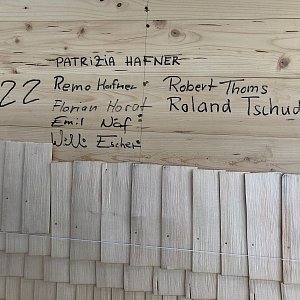 PATRIZIA HAFNER
22 Remo Hafner Robert Thoms
Florian Horat Roland Tschud
Emil Näf
Willi Escher